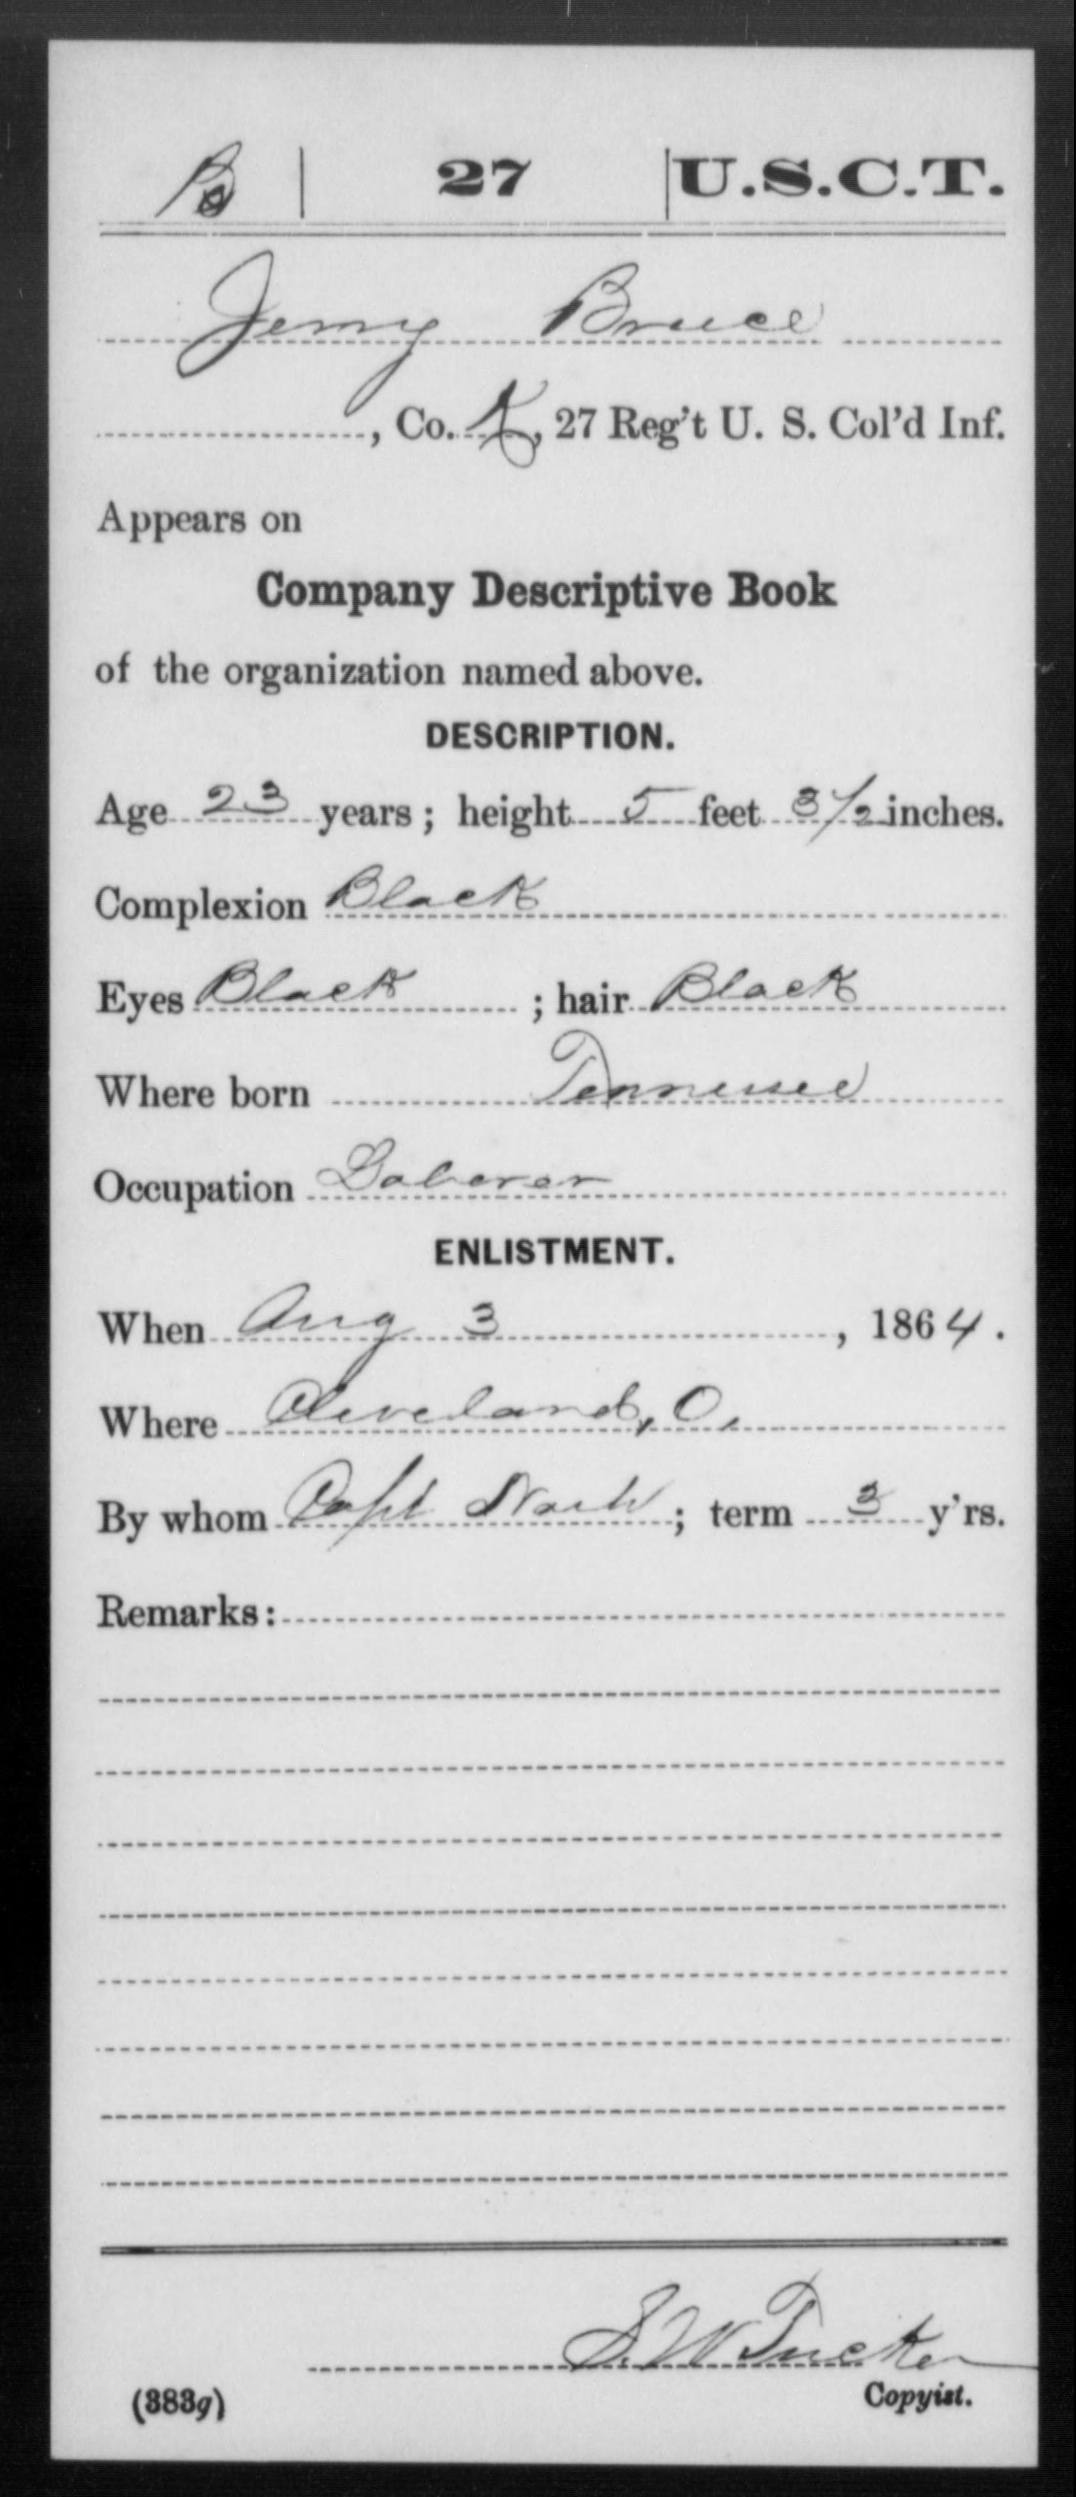 B | 27 | U.S.C.T.
Jerry Bruce
, Co. K, 27 Reg't U. S. Col'd Inf.
Appears on
Company Descriptive Book
of the organization named above.
DESCRIPTION.
Age 23 years; height 5 feet 3 1/2 inches.
Complexion Black
Eyes Black ; hair Black
Where born Tennessee
Occupation Laborer
ENLISTMENT.
When Aug 3, 1864.
Where Cleveland, O.
By whom Capt Nash; term 3 y'rs.
Remarks:
S. W. Tucker
(383g) Copyist.